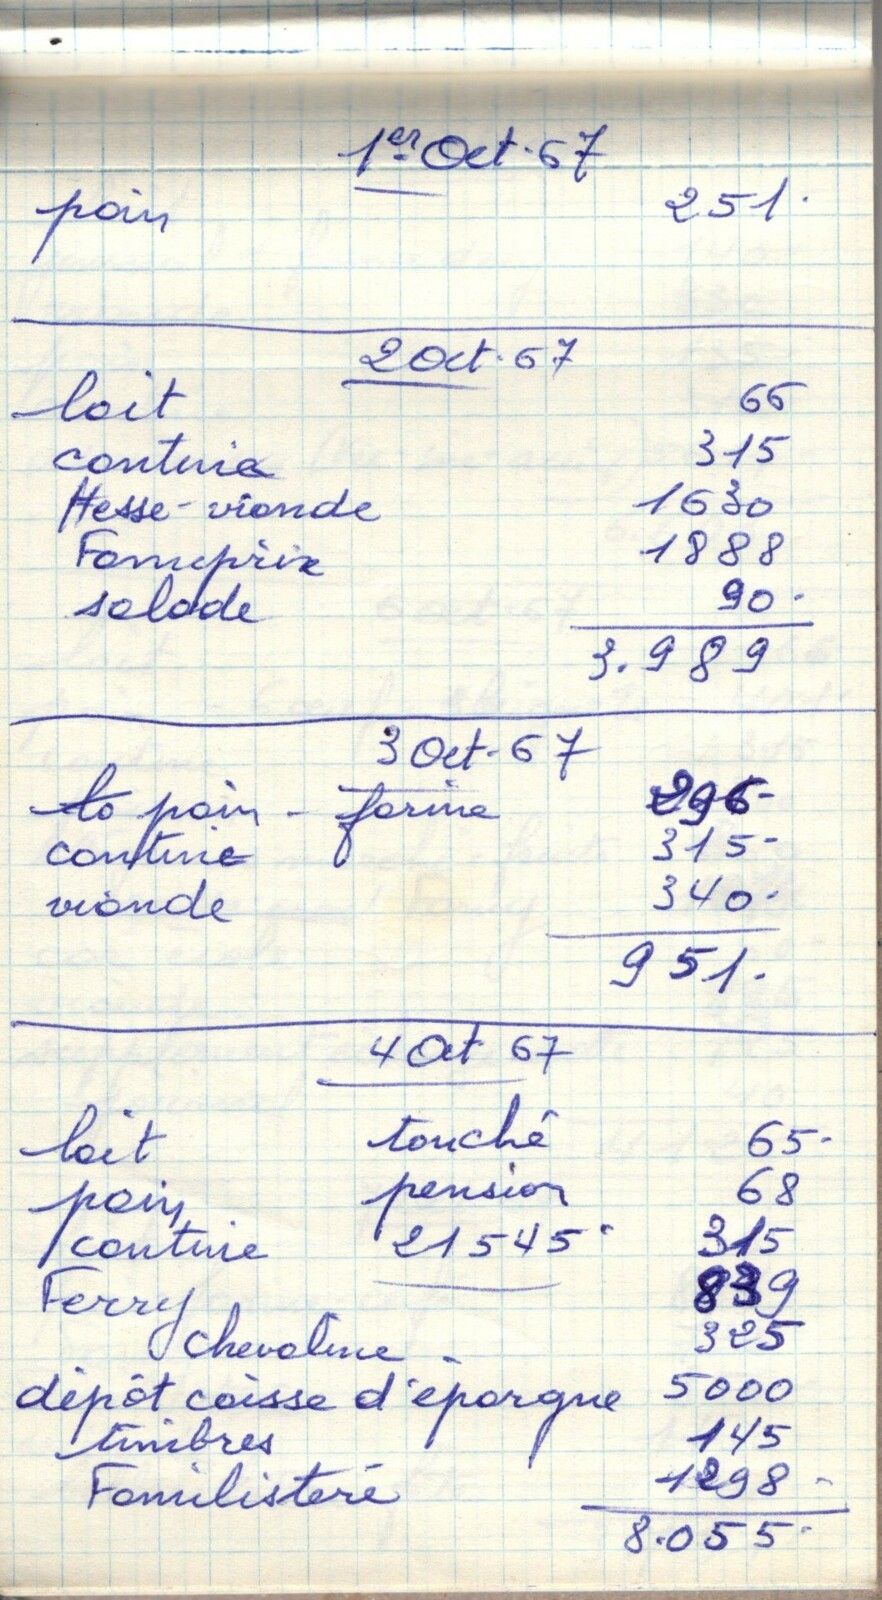 1er Oct. 67
pain 251.
2 Oct. 67
lait 66
cantine 315
Hesse - viande 1630
Fameprix 1888
salade 90.
3.989
3 Oct. 67
pain - farine 296-
cantine 315-
viande 340.
951.
4 Oct 67
lait touché 65.
pain pension 68
cantine 21545. 315
Ferry 839
chevaline - 325
dépôt caisse d'épargne 5000
timbres 145
Familistère 1298 -
8.055.